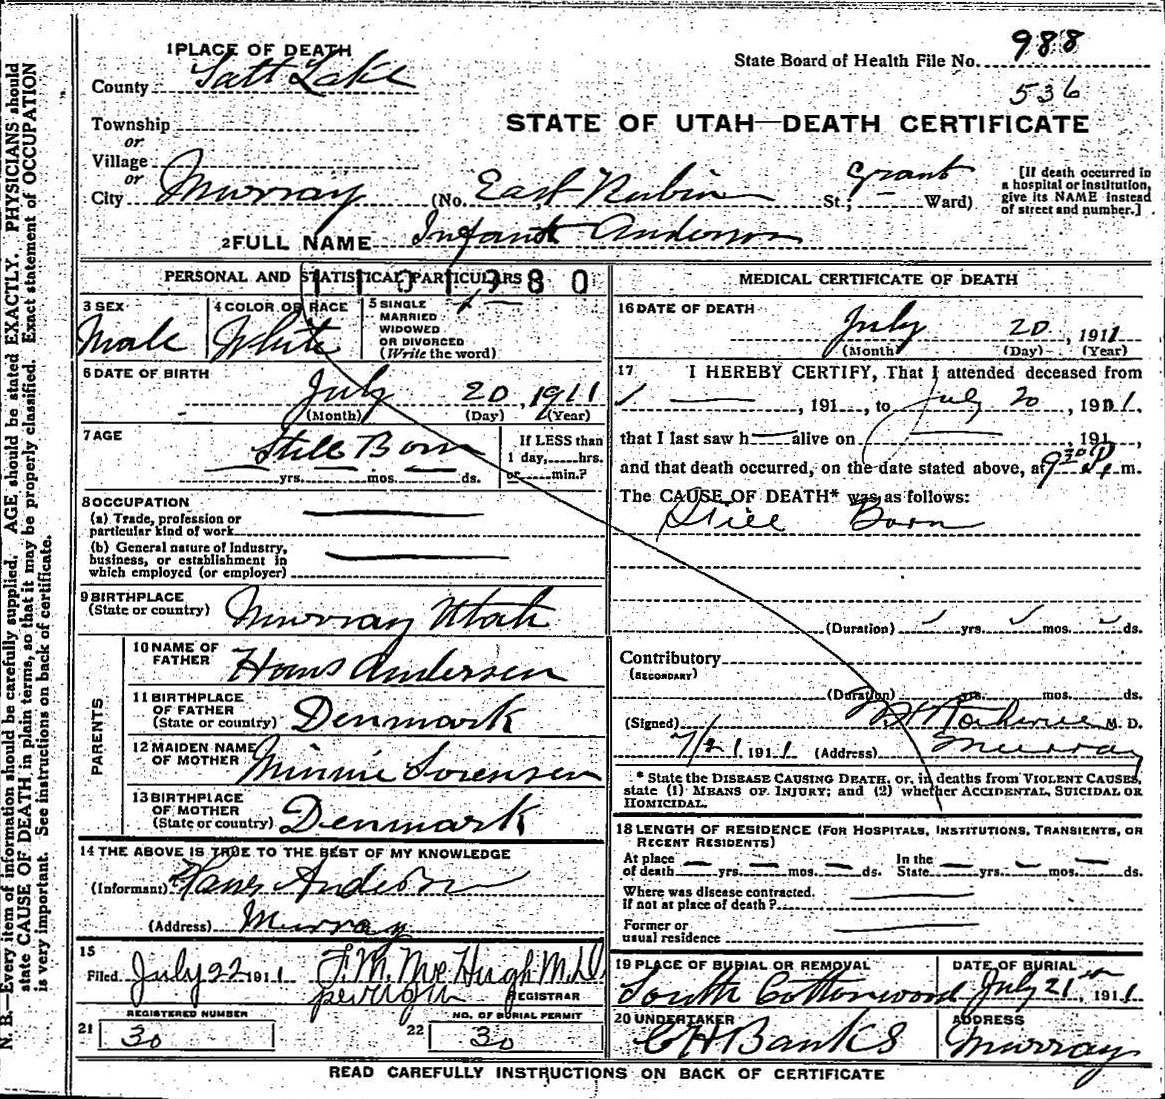 1 PLACE OF DEATH
County Salt Lake
State Board of Health File No. 988
536
Township
or
Village
or
City Murray
STATE OF UTAH—DEATH CERTIFICATE
(No. East Rubin St.; Grant Ward)
[If death occurred in a hospital or institution, give its NAME instead of street and number.]
2 FULL NAME Infant Anderson
PERSONAL AND STATISTICAL PARTICULARS
3 SEX
Male
4 COLOR OR RACE
White
5 SINGLE
MARRIED
WIDOWED
OR DIVORCED
(Write the word)
6 DATE OF BIRTH
July 20, 1911
(Month) (Day) (Year)
7 AGE
Still Born
yrs. mos. ds.
If LESS than
1 day, hrs.
or min.?
8 OCCUPATION
(a) Trade, profession or
particular kind of work
(b) General nature of Industry,
business, or establishment in
which employed (or employer)
9 BIRTHPLACE
(State or country) Murray Utah
PARENTS
10 NAME OF
FATHER Hans Andersen
11 BIRTHPLACE
OF FATHER
(State or country) Denmark
12 MAIDEN NAME
OF MOTHER Minnie Sorensen
13 BIRTHPLACE
OF MOTHER
(State or country) Denmark
14 THE ABOVE IS TRUE TO THE BEST OF MY KNOWLEDGE
(Informant) Hans Anderson
(Address) Murray
15
Filed July 22 1911 F.M. McHugh M.D.
REGISTRAR
REGISTERED NUMBER
21 30
NO. OF BURIAL PERMIT
22 30
MEDICAL CERTIFICATE OF DEATH
16 DATE OF DEATH
July 20, 1911
(Month) (Day) (Year)
17 I HEREBY CERTIFY, That I attended deceased from
, 191 , to July 20, 1911.
that I last saw h alive on , 191 ,
and that death occurred, on the date stated above, at 9 30 P. m.
The CAUSE OF DEATH* was as follows:
Still Born
(Duration) yrs. mos. ds.
Contributory
(SECONDARY)
(Duration) yrs. mos. ds.
(Signed) M. D.
7/21 1911 (Address) Murray
* State the DISEASE CAUSING DEATH, or, in deaths from VIOLENT CAUSES,
state (1) MEANS OF INJURY; and (2) whether ACCIDENTAL, SUICIDAL OR
HOMICIDAL.
18 LENGTH OF RESIDENCE (FOR HOSPITALS, INSTITUTIONS, TRANSIENTS, OR
RECENT RESIDENTS)
At place
of death yrs. mos. ds.
In the
State yrs. mos. ds.
Where was disease contracted.
If not at place of death?
Former or
usual residence
19 PLACE OF BURIAL OR REMOVAL
South Cottonwood
DATE OF BURIAL
July 21, 1911
20 UNDERTAKER
C H Banks
ADDRESS
Murray
READ CAREFULLY INSTRUCTIONS ON BACK OF CERTIFICATE
N. B.—Every item of information should be carefully supplied. AGE should be stated EXACTLY. PHYSICIANS should
state CAUSE OF DEATH in plain terms, so that it may be properly classified. Exact statement of OCCUPATION
is very important. See instructions on back of certificate.